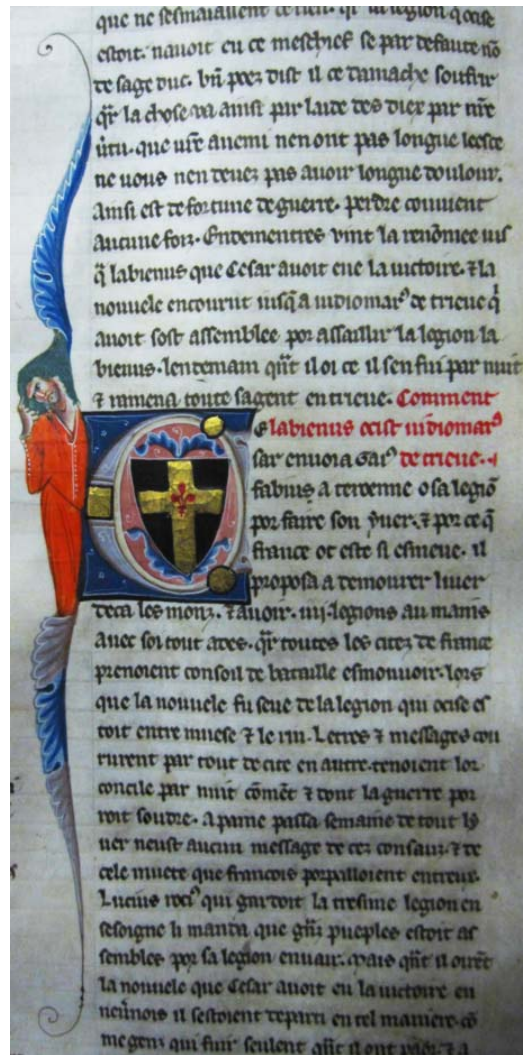 que ne sesmaiassent de rien. qr la legion q̃ ocise
estoit. nauoit eu ce meschief se par defaute nõ
de sage duc. bñ poez dist il ce damache soufrir
qr la chose va ainsi par laide des diex par nr̃e
ũtu. que ur̃e anemi nen ont pas longue leesce
ne uous nen deuez pas auoir longue doulour.
Ainsi est de fortune de guerre. perdre couuient
aucune foiz. Endementres vint la renõmee iusq̃
q̃ labienus que Cesar auoit eue la uictoire. ⁊ la
nouuele encourut iusq̃ a indiomarꝰ de trieue q̃
auoit sost assemblee por assaillir la legion la
bienus. lendemain qñt il oi ce il sen fui par nuit
⁊ ramena toute sa gent en trieue. Comment
labienus ocist indiomarꝰ
de trieue.
Cesar enuoia Gaiꝰ
fabius a teruenne o sa legiõ
por faire son yuer. ⁊ por ce q̃
france ot este si esmeue. il
proposa a demourer liuer
deca les monz. ⁊ auoir. iij. legions au mains
auec soi tout ades. qr toutes les citez de france
prenoient conseil de bataille esmouuoir. lors
que la nouuele fu seue de la legion qui ocise es
toit entre muese ⁊ le rin. Letres ⁊ messages cou
rurent par tout de cite en autre. tenoient lor
concile par nuit cõmẽt ⁊ dont la guerre por
roit soudre. a paine passa semaine de tout ly
uer neust aucun message de cez consauz. ⁊ de
cele muete que francois porpalloient entreus.
Lucius rociꝰ qui gardoit la tresime legion en
sesoigne li manda que gñz pueples estoit as
semblez por sa legion enuair. mais qñt il oirẽt
la nouuele que Cesar auoit eu la uictoire en
neũnois il sestoient reparti en tel maniere. cõ
me genz qui fuir seulent qñt il ont paor. ⁊ a